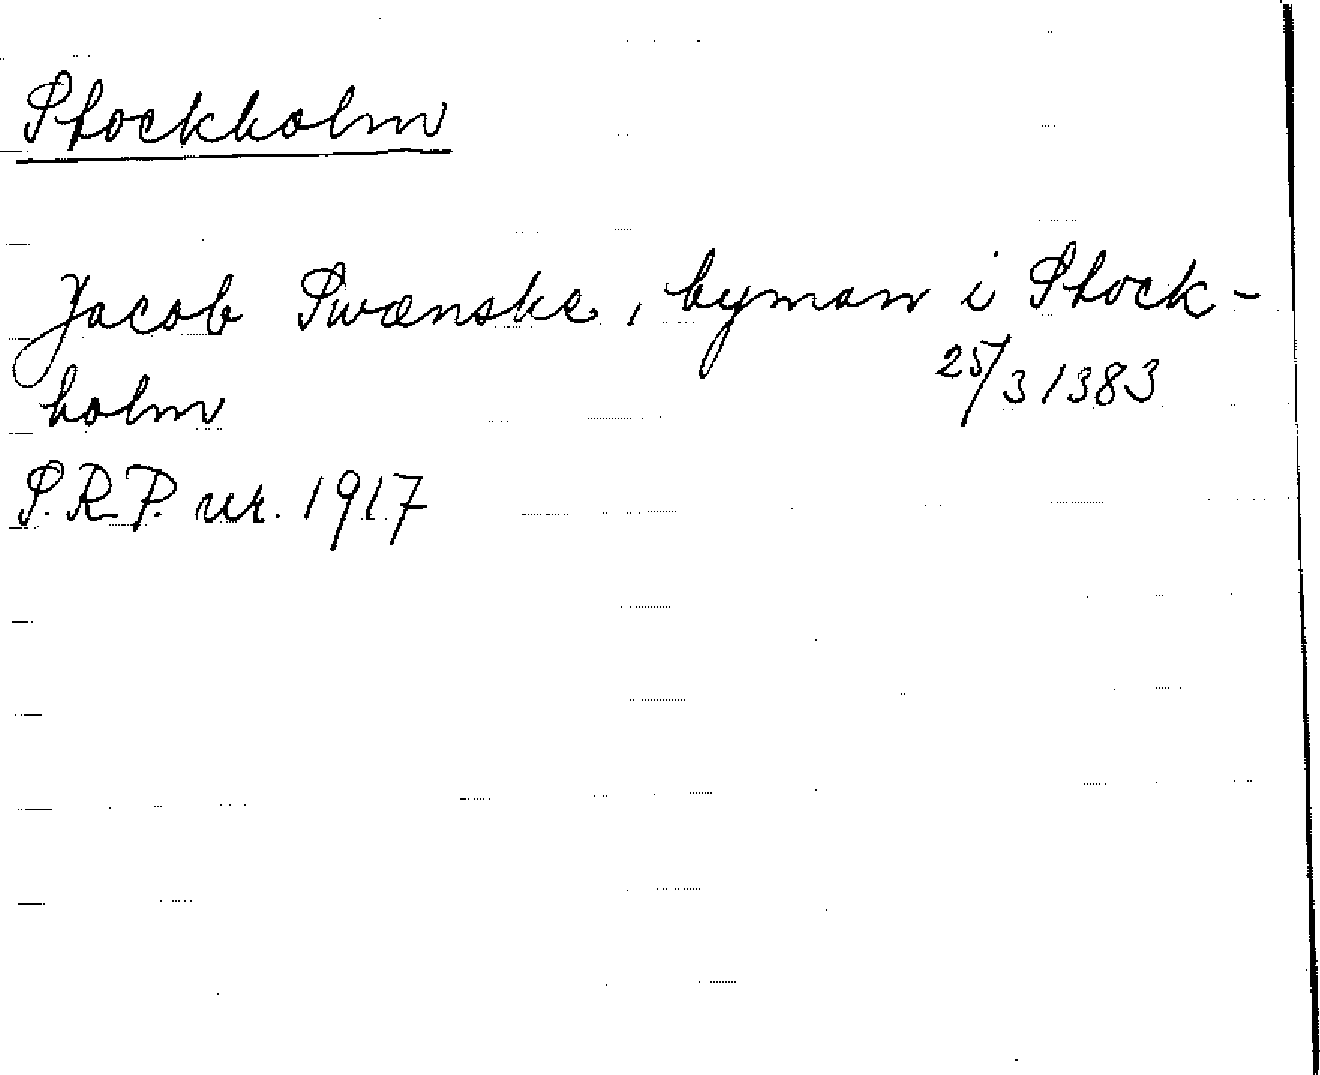 Stockholm
Jacob Swænske, byman i Stock-
holm 25/3 1383
S.R.P. nr. 1917